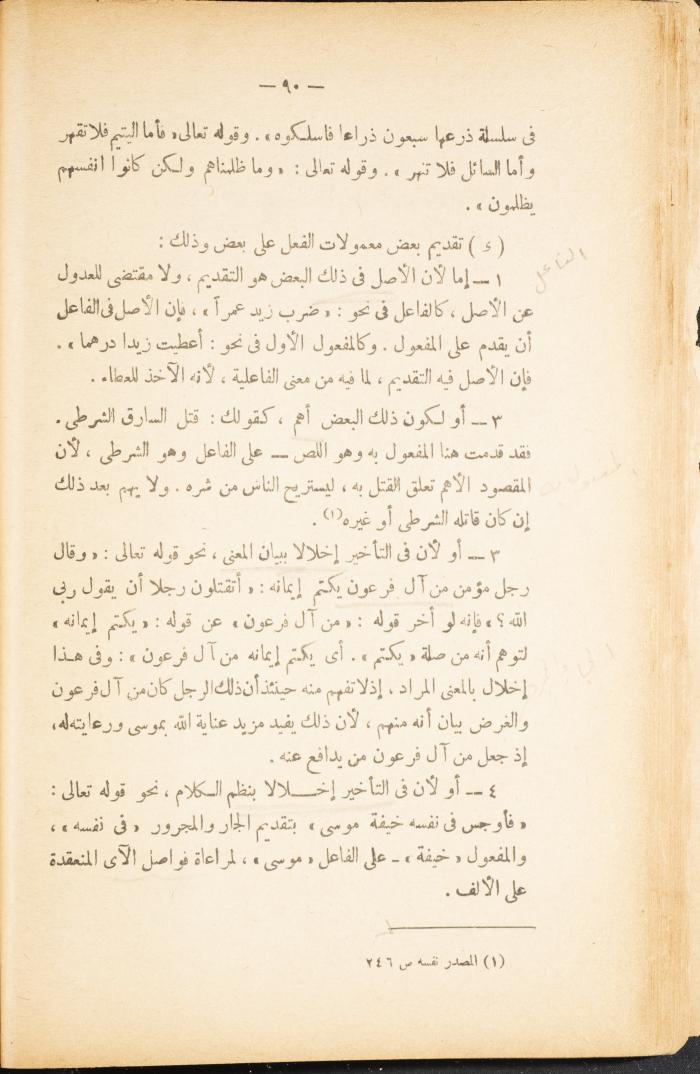 — ٩٠ —
فى سلسلة ذرعها سبعون ذراعا فاسلكوه» . وقوله تعالى «فأما اليتيم فلا تقهر
وأما السائل فلا تنهر» . وقوله تعالى : «وما ظلمناهم ولكن كانوا انفسهم
يظلمون» .
(ى) تقديم بعض معمولات الفعل على بعض وذلك :
الفاعل
١ — إما لأن الأصل فى ذلك البعض هو التقديم ، ولا مقتضى للعدول
عن الأصل ، كالفاعل فى نحو : «ضرب زيد عمرآ» ، فإن الأصل فى الفاعل
أن يقدم على المفعول . وكالمفعول الأول فى نحو : أعطيت زيدا درهما» .
فإن الأصل فيه التقديم ، لما فيه من معنى الفاعلية ، لأنه الآخذ للعطاء .
٣ — أو لكون ذلك البعض أهم ، كقولك : قتل السارق الشرطى .
فقد قدمت هنا المفعول به وهو اللص — على الفاعل وهو الشرطى ، لأن
المقصود الأهم تعلق القتل به ، ليستريح الناس من شره . ولا يهم بعد ذلك
إن كان قاتله الشرطى أو غيره(١) .
٣ — أو لأن فى التأخير إخلالا ببيان المعنى ، نحو قوله تعالى : «وقال
رجل مؤمن من آل فرعون يكتم إيمانه : «أتقتلون رجلا أن يقول ربى
الله ؟» فإنه لو أخر قوله : «من آل فرعون» عن قوله : «يكتم إيمانه»
لتوهم أنه من صلة «يكتم» . أى يكتم إيمانه من آل فرعون» : وفى هذا
إخلال بالمعنى المراد ، إذ لا تفهم منه حينئذ أن ذلك الرجل كان من آل فرعون
والغرض بيان أنه منهم ، لأن ذلك يفيد مزيد عناية الله بموسى ورعايته له،
إذ جعل من آل فرعون من يدافع عنه .
٤ — أو لأن فى التأخير إخلالا بنظم الكلام ، نحو قوله تعالى :
«فأوجس فى نفسه خيفة موسى» بتقديم الجار والمجرور «فى نفسه» ،
والمفعول «خيفة» - على الفاعل «موسى» ، لمراعاة فواصل الآى المنعقدة
على الألف .
(١) المصدر نفسه ص ٢٤٦